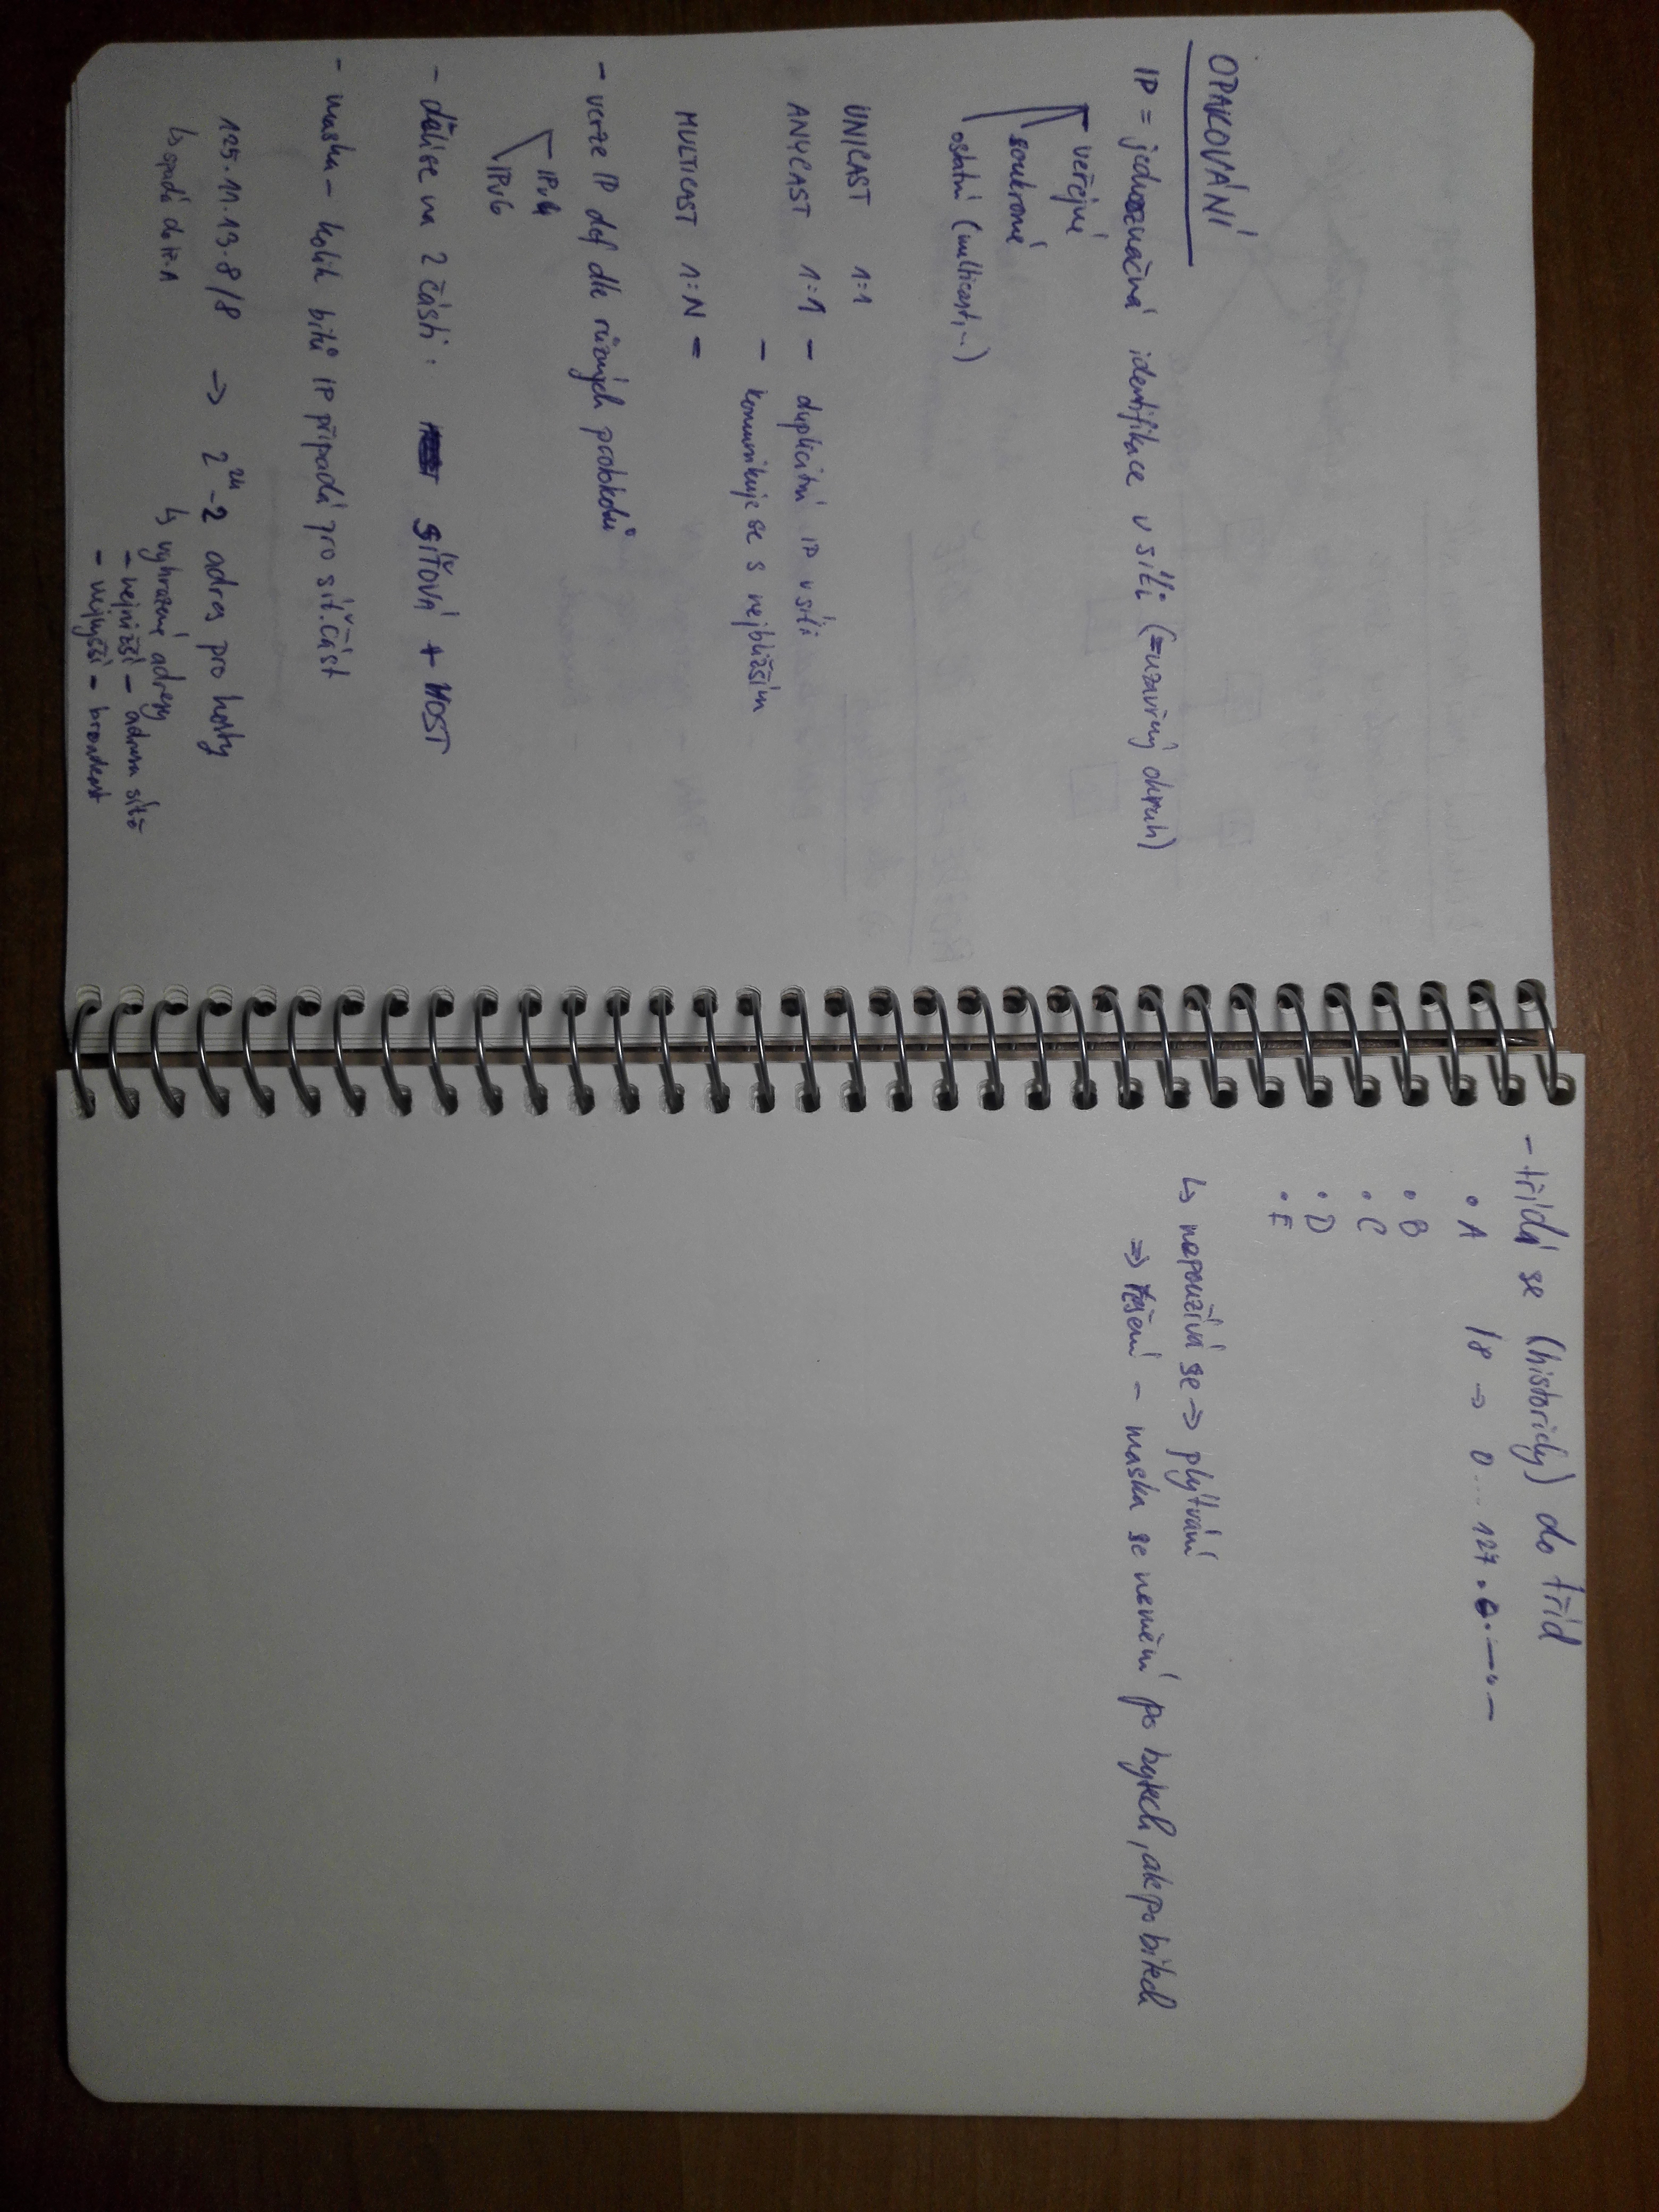 OPAKOVÁNÍ
IP = jednoznačná identifikace v síti (=uzavřený okruh)
veřejné
soukromé
ostatní (multicast,..)
UNICAST 1:1
ANYCAST 1:1 - duplicitní IP v síti
- komunikuje se s nejbližším
MULTICAST 1:N =
- verze IP def dle různých protokolů
IPv4
IPv6
- dělí se na 2 části: SÍŤOVÁ + HOST
- maska - kolik bitů IP připadá pro síť. část
125.11.13.8/8 => 2^24-2 adres pro hosty
↳ spadá do tř. A
↳ vyhrazené adresy
- nejnižší - adresa sítě
- nejvyšší - broadcast
- třídí se (historicky) do tříd
• A /8 -> 0...127.0.—.—
• B
• C
• D
• E
↳ nepoužívá se => plýtvání
=> řešení - maska se nemění po bytech, ale po bitech